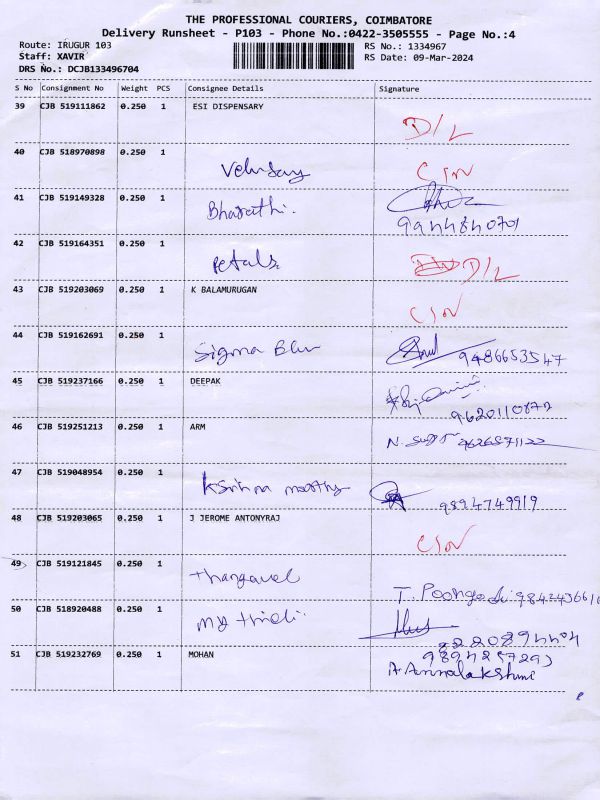 THE PROFESSIONAL COURIERS, COIMBATORE
Delivery Runsheet - P103 - Phone No.:0422-3505555 - Page No.:4
Route: IRUGUR 103 RS No.: 1334967
Staff: XAVIR RS Date: 09-Mar-2024
DRS No.: DCJB133496704
S No Consignment No Weight PCS Consignee Details Signature
39 CJB 519111862 0.250 1 ESI DISPENSARY D/L
40 CJB 518970898 0.250 1
41 CJB 519149328 0.250 1 Bharathi.
42 CJB 519164351 0.250 1 Petals D/L
43 CJB 519203069 0.250 1 K BALAMURUGAN
44 CJB 519162691 0.250 1 Sigma 9486653547
45 CJB 519237166 0.250 1 DEEPAK
46 CJB 519251213 0.250 1 ARM
47 CJB 519048954 0.250 1 9894749919
48 CJB 519203065 0.250 1 J JEROME ANTONYRAJ
49 CJB 519121845 0.250 1 Thangavel T. Poongodi
50 CJB 518920488 0.250 1
51 CJB 519232769 0.250 1 MOHAN A. Annalakshmi